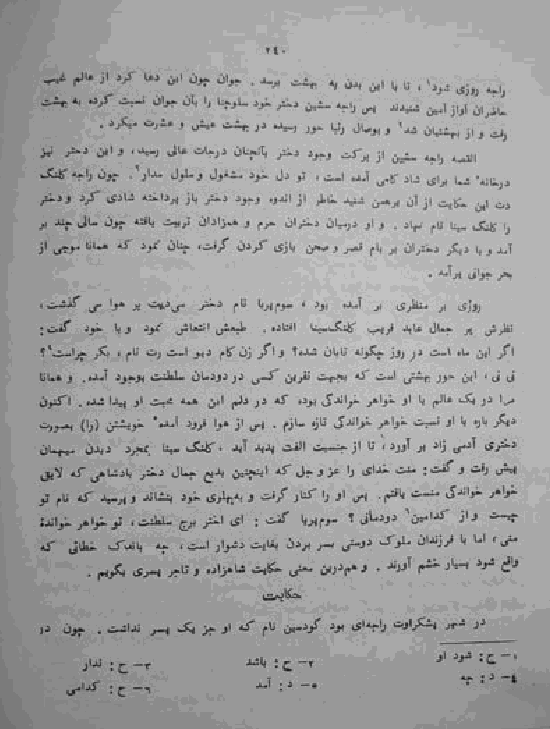 ۲۴۰
راجه روزی شود۱، تا با این بدن به بهشت برسد. جوان چون این دعا کرد از عالم غیب
حاضران آواز آمین شنیدند پس راجه ستین دختر خود سلوچنا را بآن جوان نسبت کرده به بهشت
رفت و از بهشتیان شد۲ و بوصال رنبا حور رسیده در بهشت عیش و عشرت میکرد.
القصه راجه ستین از برکت وجود دختر بآنچنان درجات عالی رسید، و این دختر نیز
درخانهٔ شما برای شاد کامی آمده است، تو دل خود مشغول و ملول مدار۳. چون راجه کلنگ
دت این حکایت از آن برهمن شنید خاطر از اندوه وجود دختر باز پرداخته شادی کرد و دختر
را کلنگ سینا نام نهاد. و او درمیان دختران حرم و همزادان تربیت یافته چون سالی چند بر
آمد و با دیگر دختران بر بام قصر و صحن بازی کردن گرفت، چنان نمود که همانا موجی از
بحر جوانی برآمد.
روزی بر منظری بر آمده بود، سوم‌پربا نام دختر می‌دیت بر هوا می گذشت،
نظرش بر جمال عابد فریب کلنگ‌سینا افتاده. طبعش انتعاش نمود و با خود گفت:
اگر این ماه است در روز چگونه تابان شده؟ و اگر زن کام دیو است رت نام، بکر چراست؟
نی نی، این حور بهشتی است که بجهت نفرین کسی در دودمان سلطنت بوجود آمده. و همانا
مرا در یک عالم با او خواهر خواندگی بوده که در دلم این همه محبت او پیدا شده. اکنون
دیگر باره با او نسبت خواهر خواندگی تازه سازم. پس از هوا فرود آمده۵ خویشتن (را) بصورت
دختری آدمی زاد بر آورد، تا از جنسیت الفت پدید آید. کلنگ سینا بمجرد دیدن میهمان
پیش رفت و گفت: منت خدای را عز و جل که اینچنین بدیع جمال دختر بادشاهی که لایق
خواهر خواندگی منست یافتم. پس او را کنار گرفت و به‌پهلوی خود بنشاند و پرسید که نام تو
چیست و از کدامین۶ دودمانی؟ سوم‌پربا گفت: ای اختر برج سلطنت، تو خواهر خواندهٔ
منی، اما با فرزندان ملوک دوستی بسر بردن بغایت دشوار است، چه باندک خطائی که
واقع شود بسیار خشم آورند. و هم‌درین معنی حکایت شاهزاده و تاجر پسری بگویم.
حکایت
در شهر پشکراوت راجه‌ای بود گودسین نام که او جز یک پسر نداشت. چون در
۱- ح: شود او ۲- ح: باشد ۳- ح: ندار
۴- د: چه ۵- د: آمد ۶- ح: کدامی